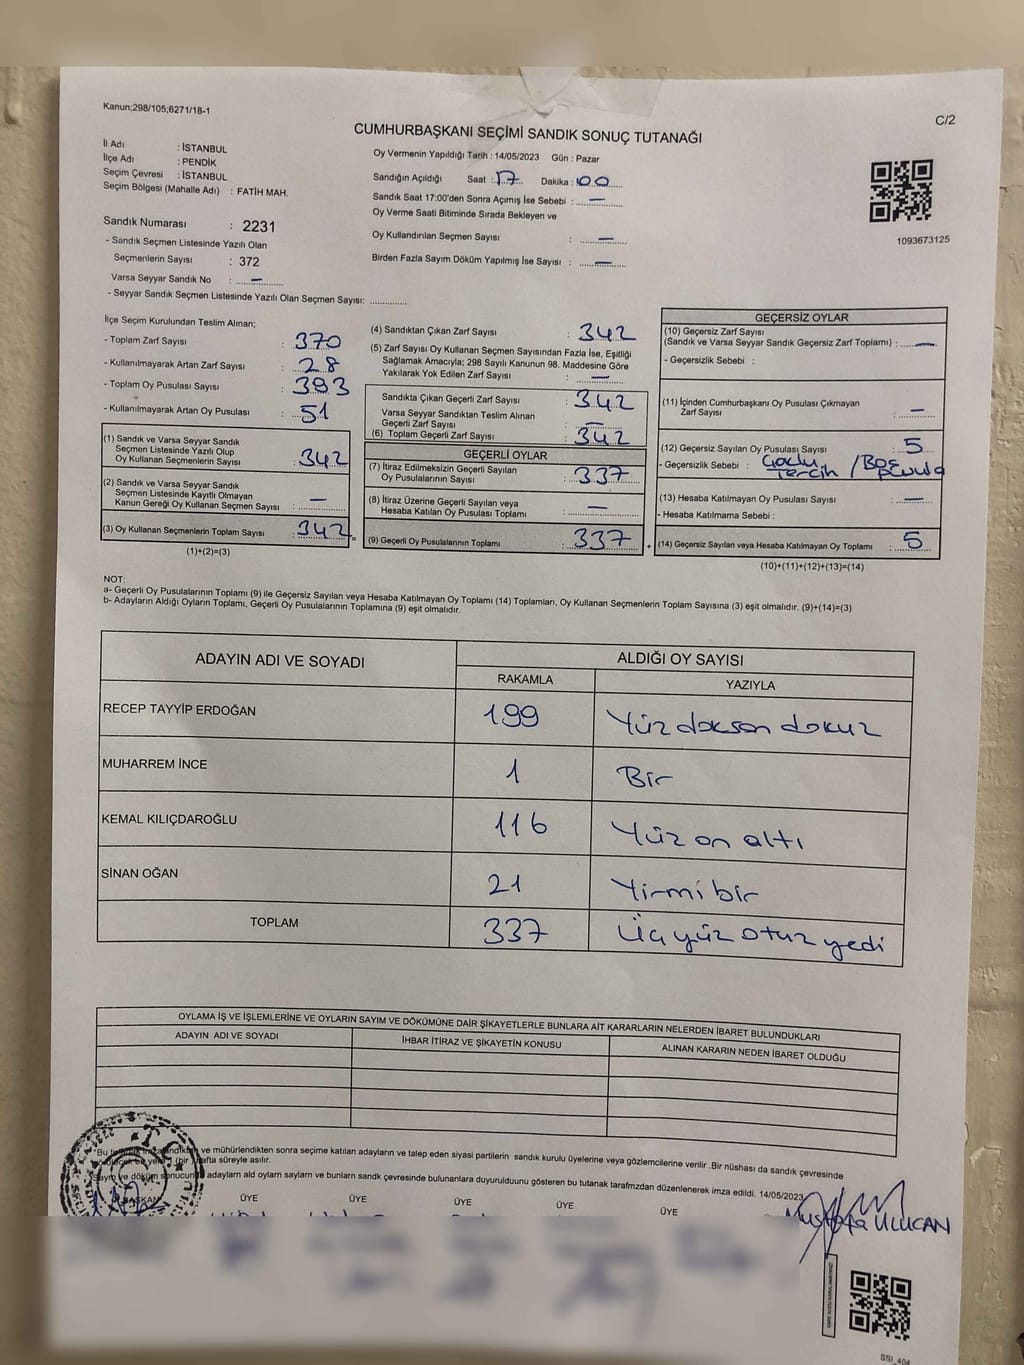 Kanun;298/105;6271/18-1
C/2
CUMHURBAŞKANI SEÇİMİ SANDIK SONUÇ TUTANAĞI
İl Adı : İSTANBUL
İlçe Adı : PENDİK
Seçim Çevresi : İSTANBUL
Seçim Bölgesi (Mahalle Adı) : FATİH MAH.
Sandık Numarası : 2231
- Sandık Seçmen Listesinde Yazılı Olan
Seçmenlerin Sayısı : 372
Varsa Seyyar Sandık No : —
- Seyyar Sandık Seçmen Listesinde Yazılı Olan Seçmen Sayısı: ............
Oy Vermenin Yapıldığı Tarih : 14/05/2023 Gün : Pazar
Sandığın Açıldığı Saat : 17 Dakika : 00
Sandık Saat 17:00'den Sonra Açımış İse Sebebi : —
Oy Verme Saati Bitiminde Sırada Bekleyen ve
Oy Kullandırılan Seçmen Sayısı : —
Birden Fazla Sayım Döküm Yapılmış İse Sayısı : —
1093673125
İlçe Seçim Kurulundan Teslim Alınan;
- Toplam Zarf Sayısı : 370
- Kullanılmayarak Artan Zarf Sayısı : 28
- Toplam Oy Pusulası Sayısı : 393
- Kullanılmayarak Artan Oy Pusulası : 51
(1) Sandık ve Varsa Seyyar Sandık
Seçmen Listesinde Yazılı Olup
Oy Kullanan Seçmenlerin Sayısı : 342
(2) Sandık ve Varsa Seyyar Sandık
Seçmen Listesinde Kayıtlı Olmayan
Kanun Gereği Oy Kullanan Seçmen Sayısı : —
(3) Oy Kullanan Seçmenlerin Toplam Sayısı : 342 =
(1)+(2)=(3)
(4) Sandıktan Çıkan Zarf Sayısı : 342
(5) Zarf Sayısı Oy Kullanan Seçmen Sayısından Fazla İse, Eşitliği
Sağlamak Amacıyla; 298 Sayılı Kanunun 98. Maddesine Göre
Yakılarak Yok Edilen Zarf Sayısı : —
Sandıkta Çıkan Geçerli Zarf Sayısı : 342
Varsa Seyyar Sandıktan Teslim Alınan
Geçerli Zarf Sayısı : —
(6) Toplam Geçerli Zarf Sayısı : 342
GEÇERLİ OYLAR
(7) İtiraz Edilmeksizin Geçerli Sayılan
Oy Pusulalarının Sayısı : 337
(8) İtiraz Üzerine Geçerli Sayılan veya
Hesaba Katılan Oy Pusulası Toplamı : —
(9) Geçerli Oy Pusulalarının Toplamı : 337 +
GEÇERSİZ OYLAR
(10) Geçersiz Zarf Sayısı
(Sandık ve Varsa Seyyar Sandık Geçersiz Zarf Toplamı) : —
- Geçersizlik Sebebi :
(11) İçinden Cumhurbaşkanı Oy Pusulası Çıkmayan
Zarf Sayısı : —
(12) Geçersiz Sayılan Oy Pusulası Sayısı : 5
- Geçersizlik Sebebi : Çoklu Tercih / Boş pusula
(13) Hesaba Katılmayan Oy Pusulası Sayısı : —
- Hesaba Katılmama Sebebi :
(14) Geçersiz Sayılan veya Hesaba Katılmayan Oy Toplamı : 5
(10)+(11)+(12)+(13)=(14)
NOT:
a- Geçerli Oy Pusulalarının Toplamı (9) ile Geçersiz Sayılan veya Hesaba Katılmayan Oy Toplamı (14) Toplamları, Oy Kullanan Seçmenlerin Toplam Sayısına (3) eşit olmalıdır. (9)+(14)=(3)
b- Adayların Aldığı Oyların Toplamı, Geçerli Oy Pusulalarının Toplamına (9) eşit olmalıdır.
ADAYIN ADI VE SOYADI ALDIĞI OY SAYISI
RAKAMLA YAZIYLA
RECEP TAYYİP ERDOĞAN 199 Yüz doksan dokuz
MUHARREM İNCE 1 Bir
KEMAL KILIÇDAROĞLU 116 Yüz on altı
SİNAN OĞAN 21 Yirmi bir
TOPLAM 337 Üç yüz otuz yedi
OYLAMA İŞ VE İŞLEMLERİNE VE OYLARIN SAYIM VE DÖKÜMÜNE DAİR ŞİKAYETLERLE BUNLARA AİT KARARLARIN NELERDEN İBARET BULUNDUKLARI
ADAYIN ADI VE SOYADI İHBAR İTİRAZ VE ŞİKAYETİN KONUSU ALINAN KARARIN NEDEN İBARET OLDUĞU
ve mühürlendikten sonra seçime katılan adayların ve talep eden siyasi partilerin sandık kurulu üyelerine veya gözlemcilerine verilir .Bir nüshası da sandık çevresinde
(bir) hafta süreyle asılır.
adayların ald oyların saylam ve bunların sandk çevresinde bulunanlara duyurulduunu gösteren bu tutanak tarafmzdan düzenlenerek imza edildi. 14/05/2023
BAŞKAN ÜYE ÜYE ÜYE ÜYE ÜYE
Mustafa ULUCAN
SSİ_404